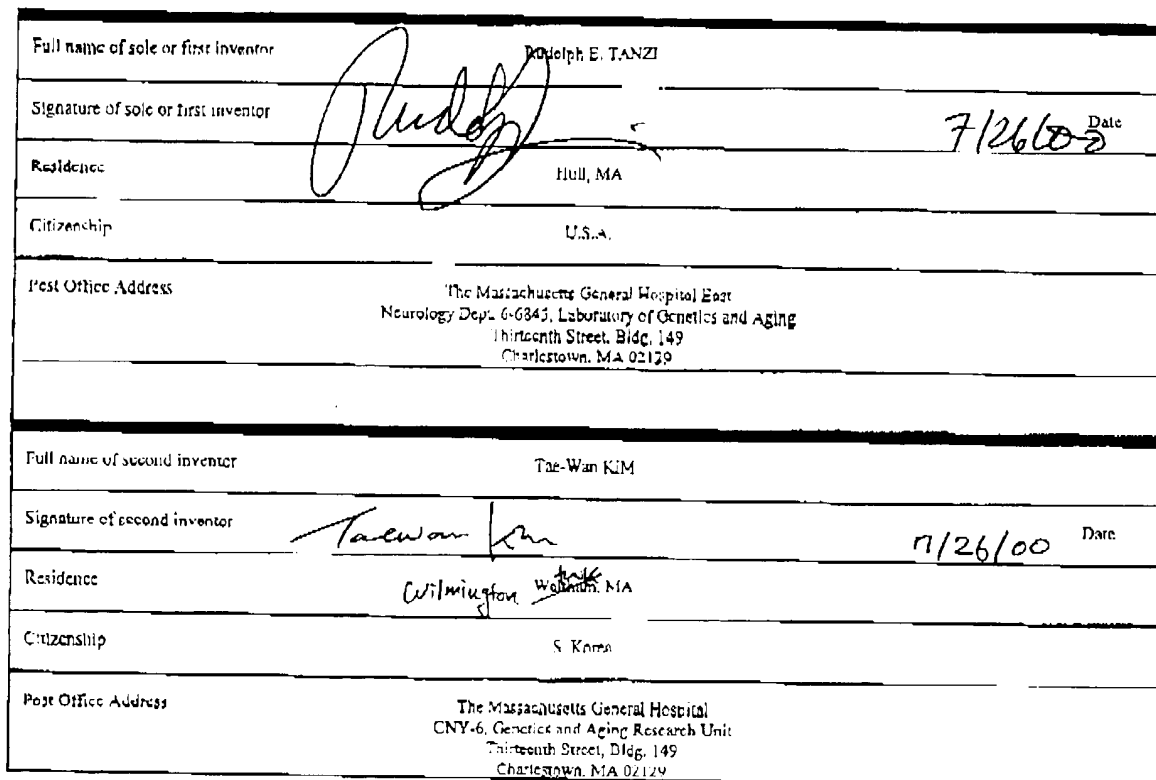 Full name of sole or first inventor Rudolph E. TANZI
Signature of sole or first inventor 7/26/00 Date
Residence Hull, MA
Citizenship U.S.A.
Post Office Address The Massachusetts General Hospital East
Neurology Dept. 6-6845, Laboratory of Genetics and Aging
Thirteenth Street, Bldg. 149
Charlestown, MA 02129
Full name of second inventor Tae-Wan KIM
Signature of second inventor Taewan Kim 7/26/00 Date
Residence Wilmington MA
Citizenship S. Korea
Post Office Address The Massachusetts General Hospital
CNY-6, Genetics and Aging Research Unit
Thirteenth Street, Bldg. 149
Charlestown, MA 02129